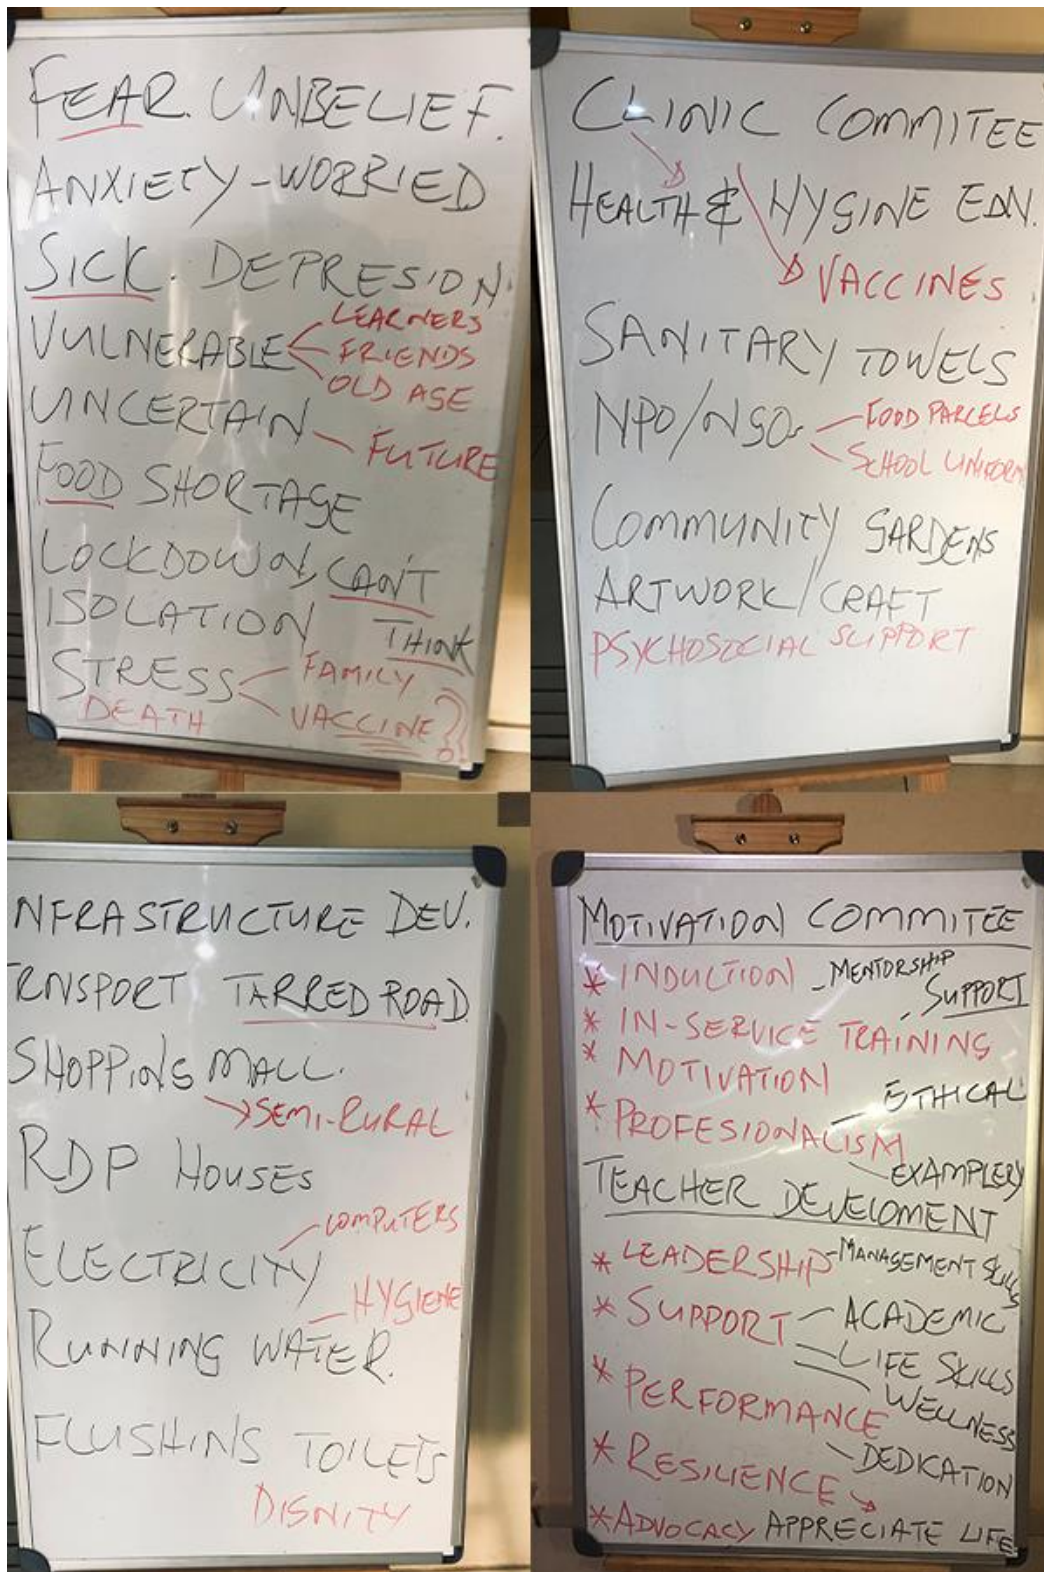 FEAR. UNBELIEF.
ANXIETY-WORRIED
SICK. DEPRESION.
VULNERABLE
LEARNERS
FRIENDS
OLD AGE
UNCERTAIN
FUTURE
FOOD SHORTAGE
LOCKDOWN, CAN'T
ISOLATION THINK
STRESS
FAMILY
DEATH
VACCINE??
CLINIC COMMITEE
HEALTH & HYGINE EDN.
VACCINES
SANITARY TOWELS
NPO/NGOs
FOOD PARCELS
SCHOOL UNIFORM
COMMUNITY GARDENS
ARTWORK/CRAFT
PSYCHOSOCIAL SUPPORT
NFRASTRUCTURE DEV.
TRNSPORT TARRED ROAD
SHOPPING MALL.
SEMI-RURAL
RDP HOUSES
COMPUTERS
ELECTRICITY
HYGIENE
RUNNING WATER.
FLUSHING TOILETS
DIGNITY
MOTIVATION COMMITEE
* INDUCTION - MENTORSHIP
SUPPORT
* IN-SERVICE TRAINING
* MOTIVATION
ETHICAL
* PROFESIONALISM
EXAMPLERY
TEACHER DEVELOMENT
* LEADERSHIP - MANAGEMENT SKILLS
* SUPPORT - ACADEMIC
LIFE SKILLS
WELLNESS
* PERFORMANCE
DEDICATION
* RESILIENCE
* ADVOCACY APPRECIATE LIFE